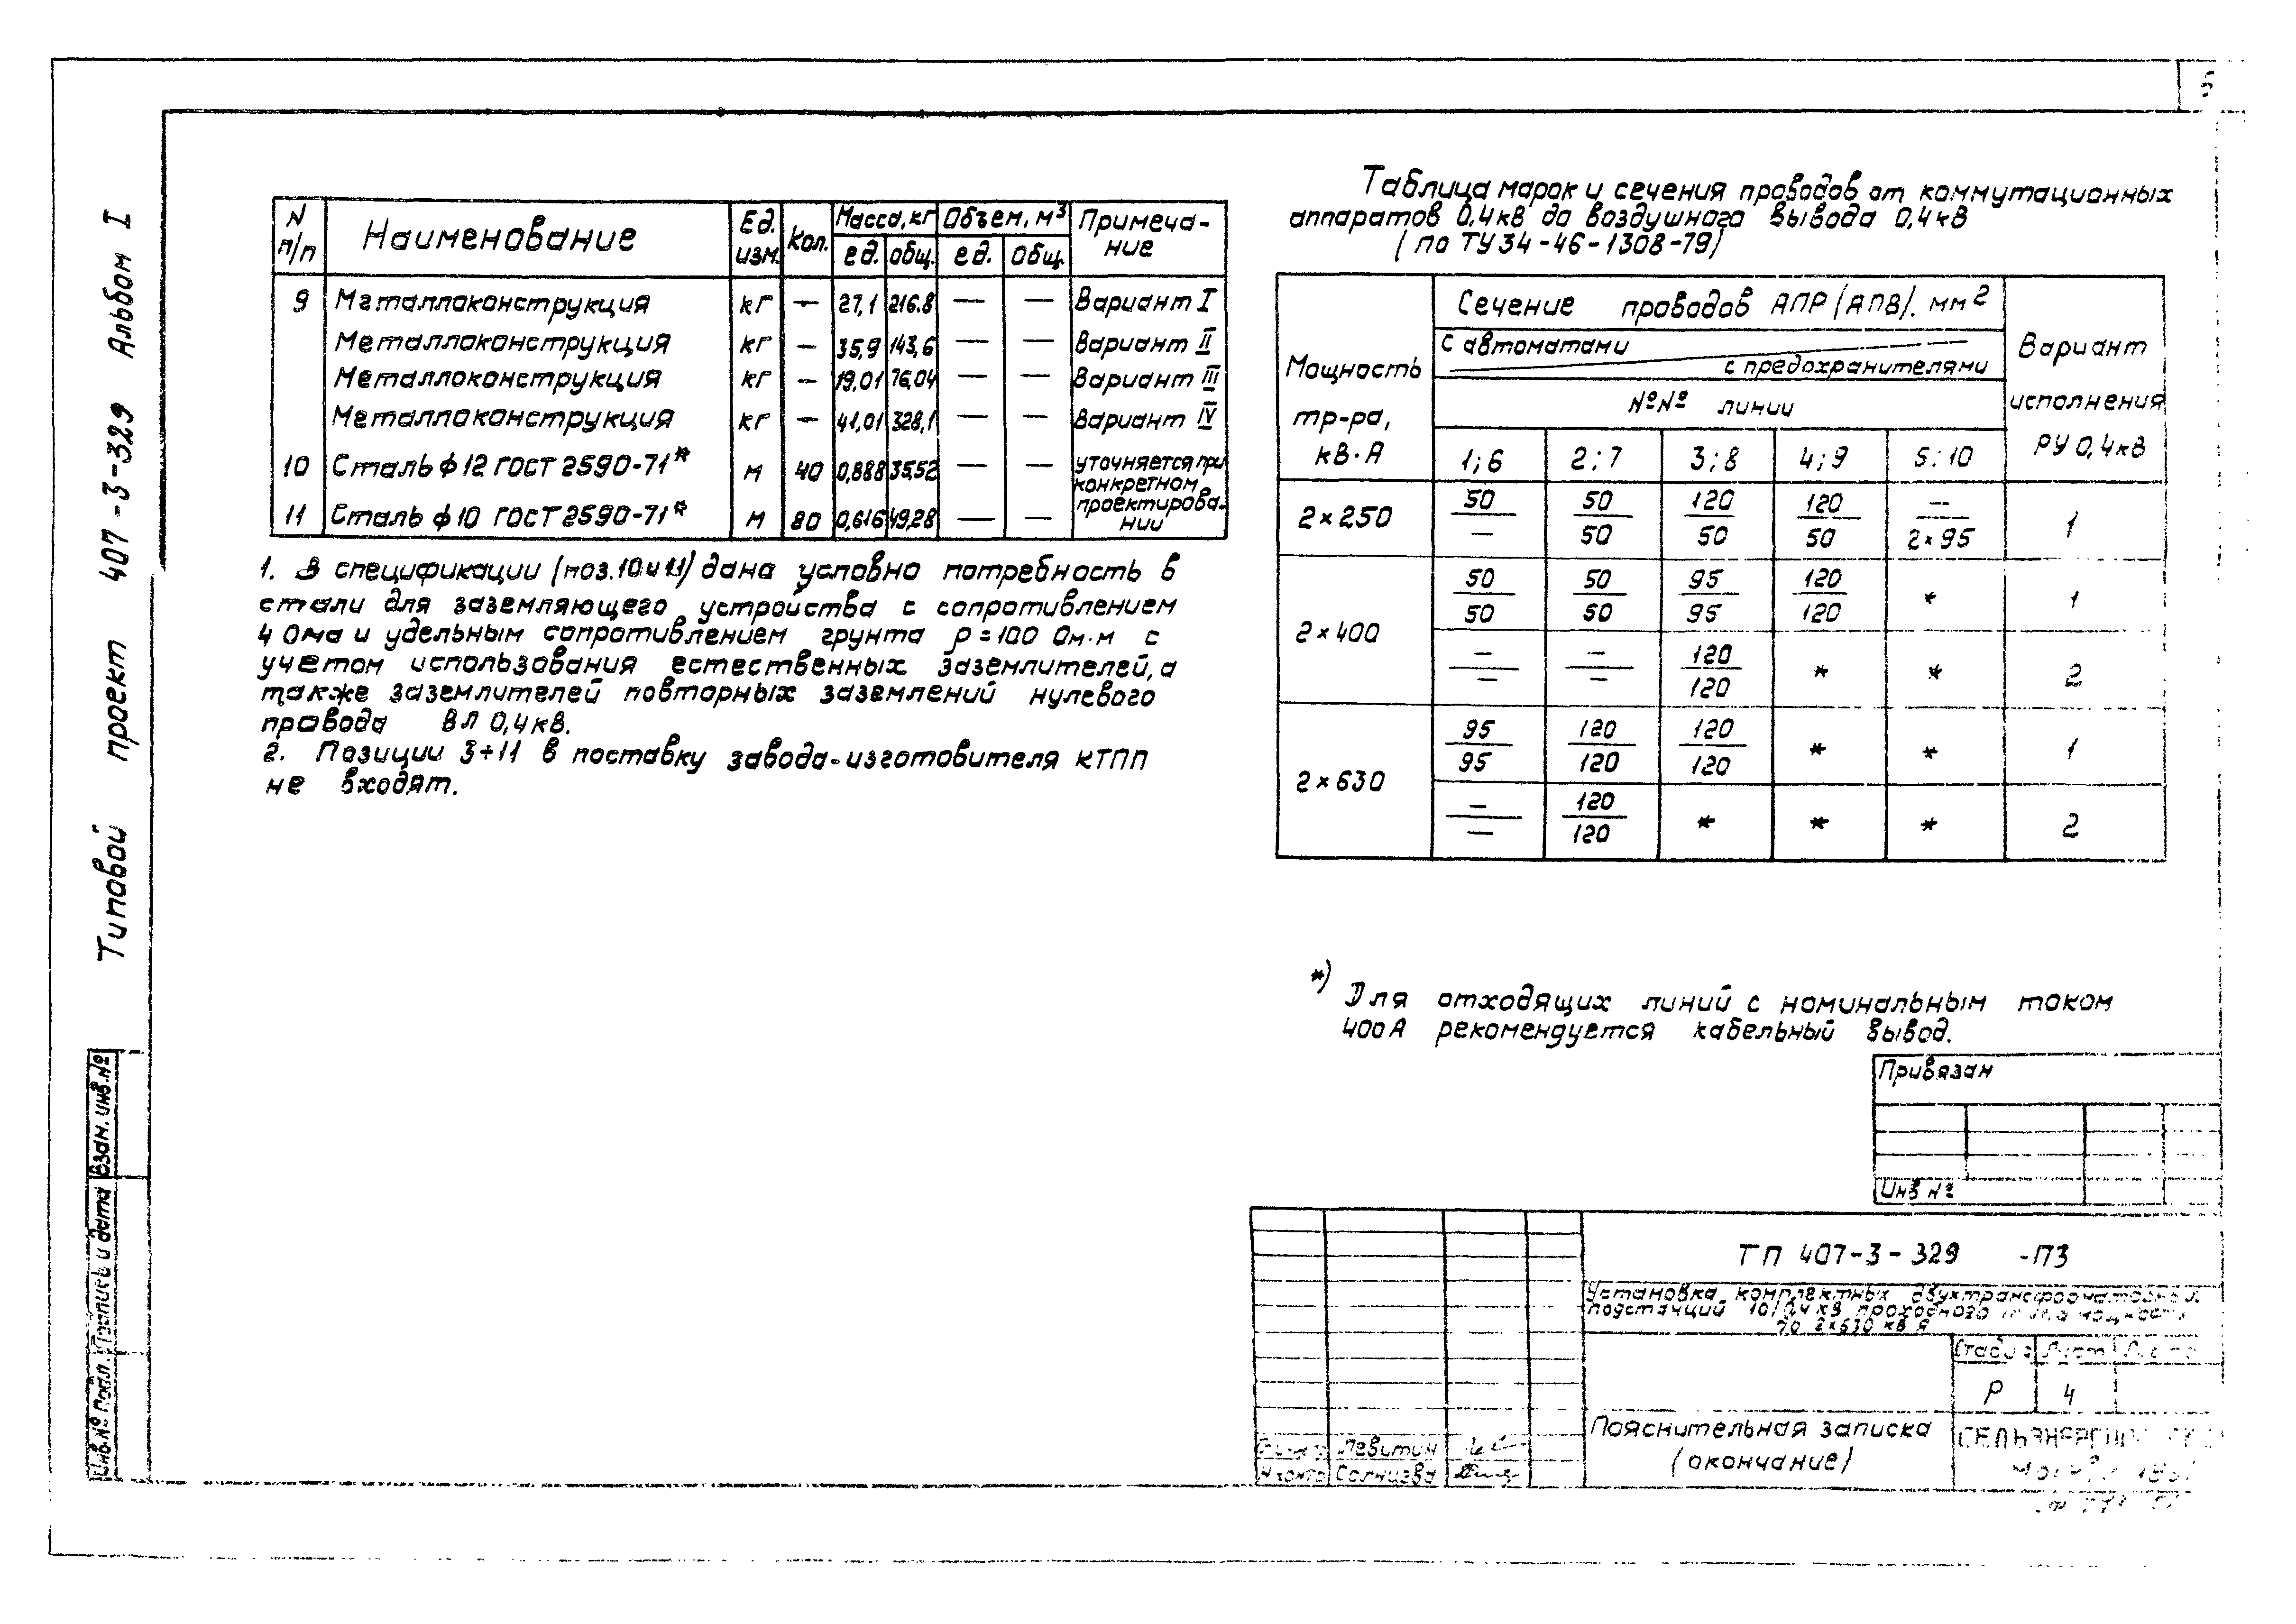 Типовой проект 407-3-329 Альбом I
N п/п Наименование Ед. изм. Кол. Масса, кг Объем, м³ Примеча-
ние
ед. общ. ед. общ.
9 Металлоконструкция кг — 27,1 216.8 — — Вариант I
Металлоконструкция кг — 35,9 143,6 — — Вариант II
Металлоконструкция кг — 19,01 76,04 — — Вариант III
Металлоконструкция кг — 41,01 328,1 — — Вариант IV
10 Сталь ф12 ГОСТ 2590-71* м 40 0,888 35,52 — — уточняется при
конкретном
проектирова-
нии
11 Сталь ф10 ГОСТ 2590-71* м 80 0,616 49,28 — —
1. В спецификации (поз.10 и 11) дана условно потребность в
стали для заземляющего устройства с сопротивлением
4 Ома и удельным сопротивлением грунта ρ=100 Ом·м с
учетом использования естественных заземлителей, а
также заземлителей повторных заземлений нулевого
провода ВЛ 0,4кв.
2. Позиции 3÷11 в поставку завода-изготовителя КТПП
не входят.
Таблица марок и сечения проводов от коммутационных
аппаратов 0,4кв до воздушного вывода 0,4кв
(по ТУ34-46-1308-79)
Мощность
тр-ра,
кв·А
Сечение проводов АПР(АПВ). мм²
с автоматами
с предохранителями
№№ линии
1;6 2;7 3;8 4;9 5;10
Вариант
исполнения
РУ 0,4кв
2×250 50/— 50/50 120/50 120/50 —/2×95 1
2×400 50/50 50/50 95/95 120/120 * 1
—/— —/— 120/120 * * 2
2×630 95/95 120/120 120/120 * * 1
—/— 120/120 * * * 2
*) Для отходящих линий с номинальным током
400А рекомендуется кабельный вывод.
Привязан
Инв №
ТП 407-3-329 -ПЗ
Установка комплектных двухтрансформаторных
подстанций 10/0,4кв проходного типа мощностью
до 2×630 кв А
Стадия Лист
Р 4
Пояснительная записка
(окончание)
Левитин
Н.контр Солнцева
Взам. инв.№
Подпись и дата
Инв.№ подл.